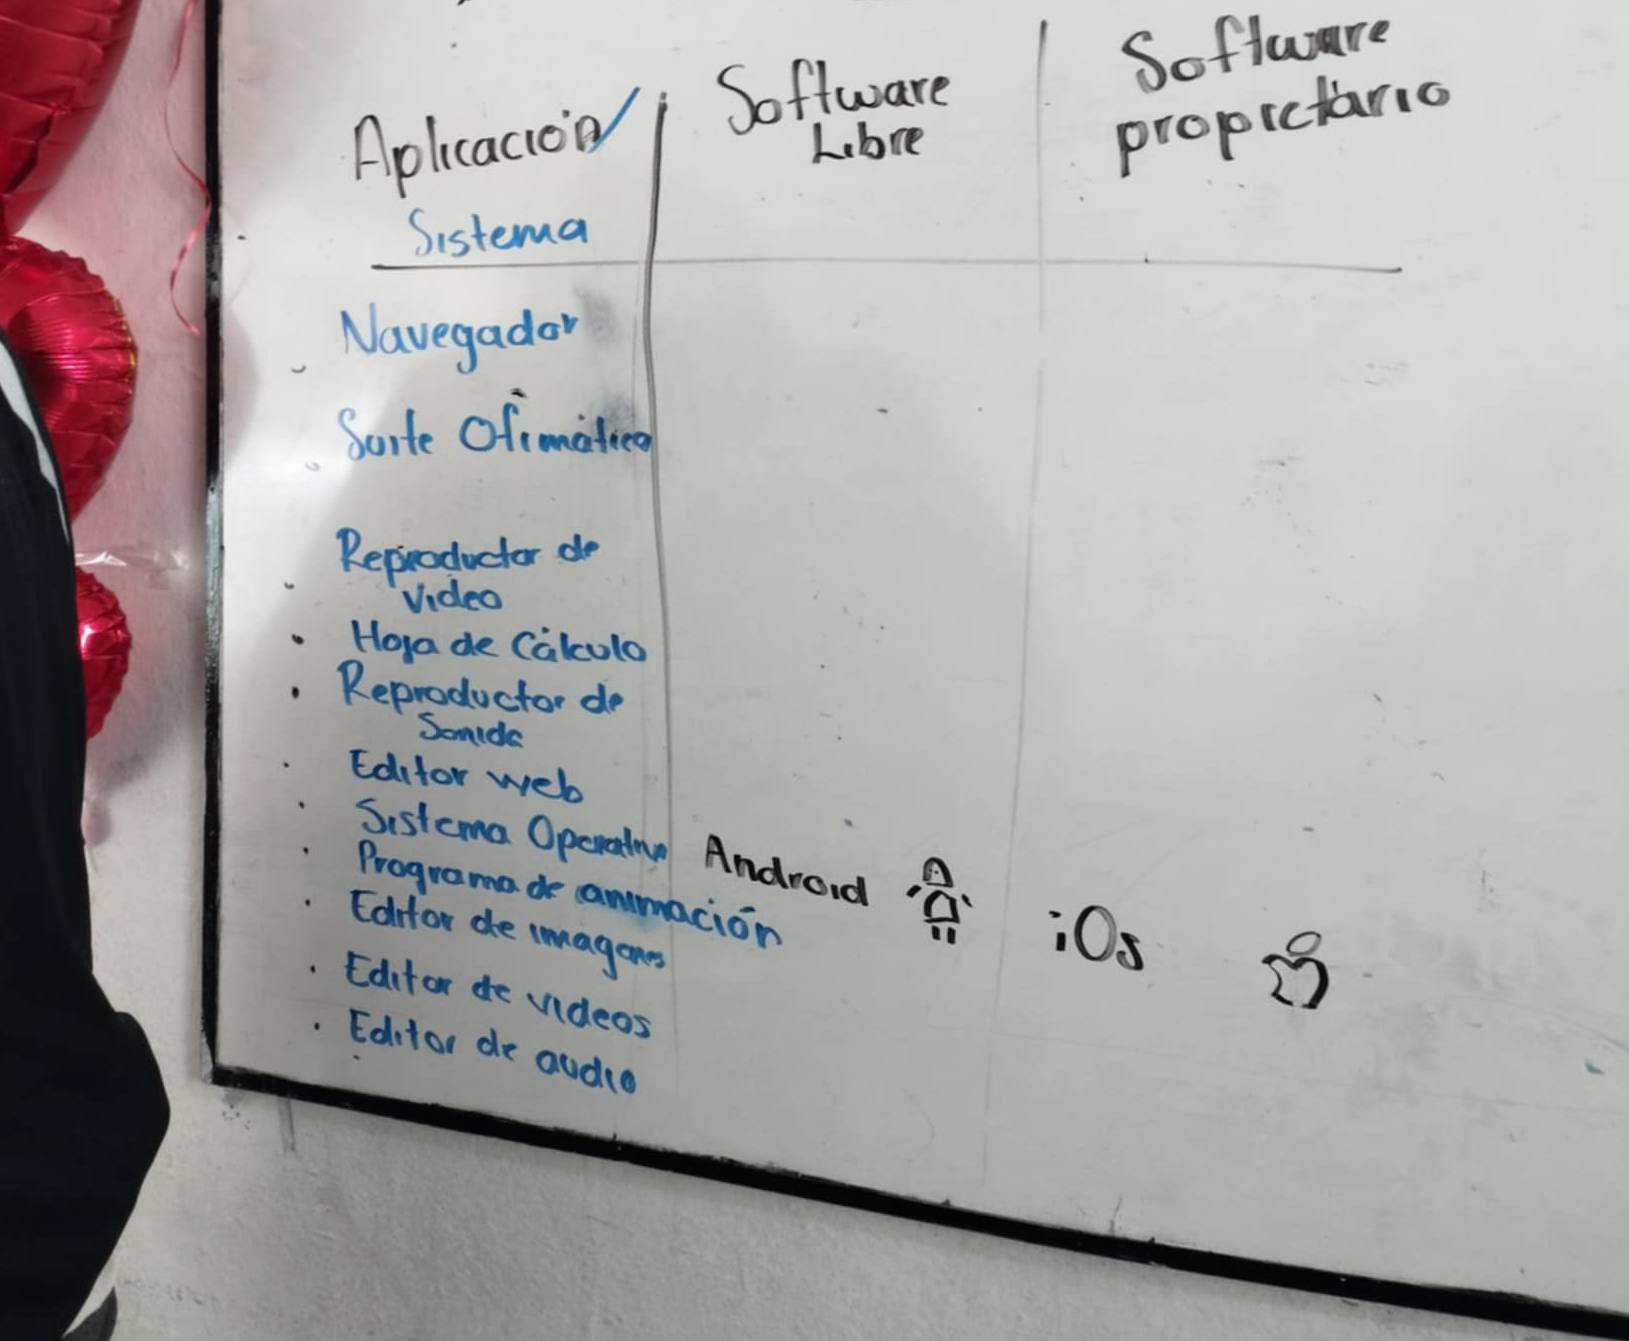 Aplicación/ Software Libre Software propietario
Sistema
Navegador
Suite Ofimática
Reproductor de
Video
Hoja de Cálculo
Reproductor de
Sonido
Editor web
Sistema Operativo Android iOs
Programa de animación
Editor de imagenes
Editor de videos
Editor de audio